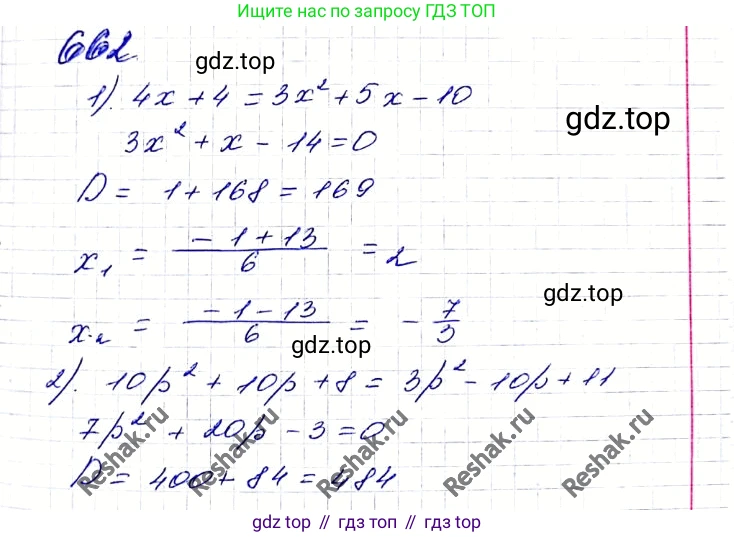 Ищите нас по запросу ГДЗ ТОП
662
gdz.top
1). 4x + 4 = 3x² + 5x - 10
gdz.top
3x² + x - 14 = 0
D = 1 + 168 = 169
x₁ = (-1 + 13)/6 = 2
gdz.top
x₂ = (-1 - 13)/6 = -7/3
gdz.top
2). 10p² + 10p + 8 = 3p² - 10p + 11
7p² + 20p - 3 = 0
D = 400 + 84 = 484
Reshak.ru Reshak.ru Reshak.ru Reshak.ru Reshak.ru
gdz.top // гдз топ // gdz top